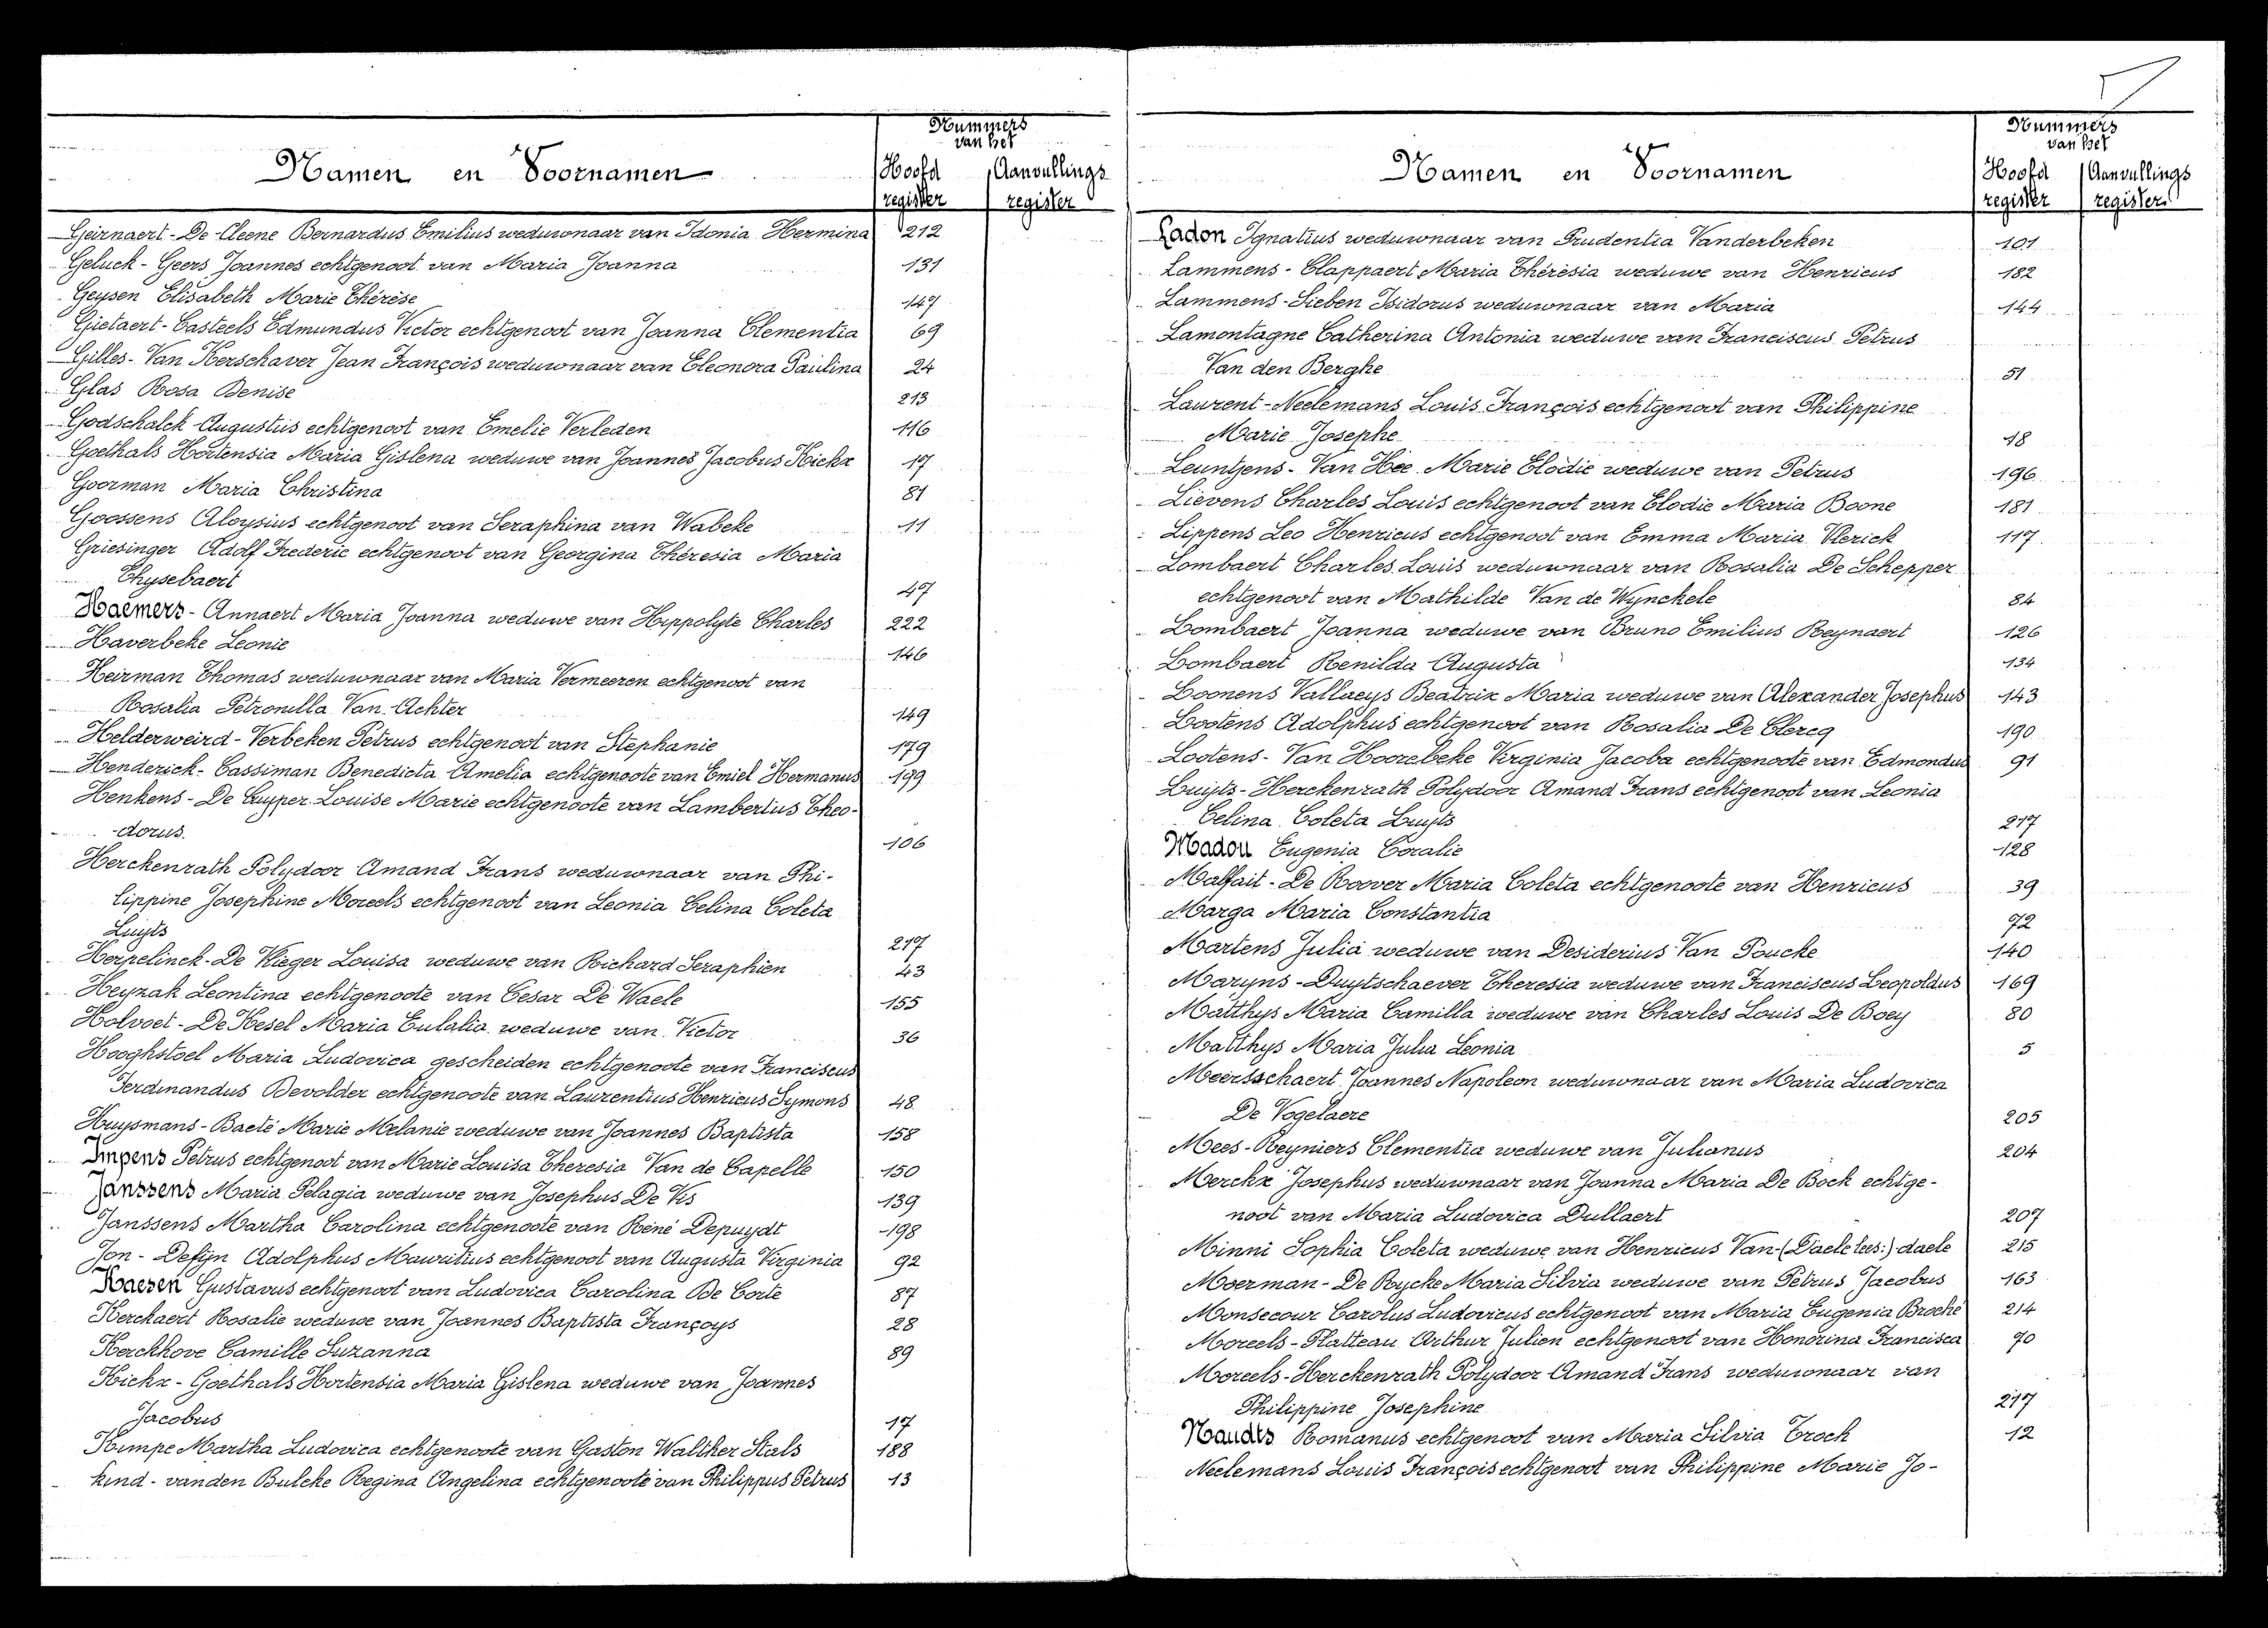 Nummers
van het
Namen en Voornamen
Hoofd
register
Aanvullings
register
Geirnaert - De Cleene Bernardus Emilius weduwnaar van Idonia Hermina 212
Geluck - Geers Joannes echtgenoot van Maria Joanna 131
Geysen Elisabeth Marie Thérèse 147
Gietaert - Casteels Edmundus Victor echtgenoot van Joanna Clementia 69
Gilles - Van Kerschaver Jean François weduwnaar van Eleonora Paulina 24
Glas Rosa Denise 213
Godschalck Augustus echtgenoot van Emelie Verleden 116
Goethals Hortensia Maria Gislena weduwe van Joannes Jacobus Kickx 17
Goorman Maria Christina 81
Goossens Aloysius echtgenoot van Seraphina van Wabeke 11
Griesinger Adolf Frederic echtgenoot van Georgina Théresia Maria
Thysebaert 47
Haemers - Annaert Maria Joanna weduwe van Hippolyte Charles 222
Haverbeke Leonie 146
Heirman Thomas weduwnaar van Maria Vermeeren echtgenoot van
Rosalia Petronilla Van Achter 149
Helderweird - Verbeken Petrus echtgenoot van Stephanie 179
Henderick - Cassiman Benedicta Amelia echtgenoote van Emiel Hermanus 199
Henkens - De Cuyper Louise Marie echtgenoote van Lambertius Theo-
dorus 106
Herckenrath Polydoor Amand Frans weduwnaar van Phi-
lippine Josephine Moreels echtgenoot van Leonia Celina Coleta
Luyts 217
Herpelinck - De Vlieger Louisa weduwe van Richard Seraphien 43
Heyzak Leontina echtgenoote van Cesar De Waele 155
Holvoet - De Kesel Maria Eulalia weduwe van Victor 36
Hooghstoel Maria Ludovica gescheiden echtgenoote van Franciscus
Ferdinandus Devolder echtgenoote van Laurentius Henricus Symons 48
Huysmans - Baeté Marie Melanie weduwe van Joannes Baptista 158
Impens Petrus echtgenoot van Marie Louisa Theresia Van de Capelle 150
Janssens Maria Pelagia weduwe van Josephus De Vis 139
Janssens Martha Carolina echtgenoote van Réné Depuydt 198
Jon - Defijn Adolphus Mauritius echtgenoot van Augusta Virginia 92
Kaesen Gustavus echtgenoot van Ludovica Carolina De Corte 87
Kerckaert Rosalie weduwe van Joannes Baptista Françoys 28
Kerckhove Camille Suzanna 89
Kickx - Goethals Hortensia Maria Gislena weduwe van Joannes
Jacobus 17
Kimpe Martha Ludovica echtgenoote van Gaston Walther Stals 188
Kind - vanden Bulcke Regina Angelina echtgenoote van Philippus Petrus 13
Nummers
van het
Namen en Voornamen
Hoofd
register
Aanvullings
register
Ladon Ignatius weduwnaar van Prudentia Vanderbeken 101
Lammens - Clappaert Maria Thérèsia weduwe van Henricus 182
Lammens - Sieben Isidorus weduwnaar van Maria 144
Lamontagne Catherina Antonia weduwe van Franciscus Petrus
Van den Berghe 51
Laurent - Neelemans Louis François echtgenoot van Philippine
Marie Josephe 18
Leuntjens - Van Hee Marie Elodie weduwe van Petrus 196
Lievens Charles Louis echtgenoot van Elodie Maria Boone 181
Lippens Leo Henricus echtgenoot van Emma Maria Vlerick 117
Lombaert Charles Louis weduwnaar van Rosalia De Schepper
echtgenoot van Mathilde Van de Wynckele 84
Lombaert Joanna weduwe van Bruno Emilius Reynaert 126
Lombaert Renilda Augusta 134
Loonens Vallaeys Beatrix Maria weduwe van Alexander Josephus 143
Lootens Adolphus echtgenoot van Rosalia De Clercq 190
Lootens - Van Hoorebeke Virginia Jacoba echtgenoote van Edmondus 91
Luijts - Herckenrath Polydoor Amand Frans echtgenoot van Leonia
Celina Coleta Luijts 217
Madou Eugenia Coralie 128
Malfait - De Roover Maria Coleta echtgenoote van Henricus 39
Marga Maria Constantia 72
Martens Julia weduwe van Desiderius Van Poucke 140
Maryns - Duytschaever Theresia weduwe van Franciscus Leopoldus 169
Matthys Maria Camilla weduwe van Charles Louis De Boey 80
Matthys Maria Julia Leonia 5
Meersschaert Joannes Napoleon weduwnaar van Maria Ludovica
De Vogelaere 205
Mees - Reyniers Clementia weduwe van Julianus 204
Merckx Josephus weduwnaar van Joanna Maria De Bock echtge-
noot van Maria Ludovica Dullaert 207
Minni Sophia Coleta weduwe van Henricus Van (Daele lees:) daele 215
Moerman - De Rycke Maria Silvia weduwe van Petrus Jacobus 163
Monsecour Carolus Ludovicus echtgenoot van Maria Eugenia Broché 214
Moreels - Platteau Arthur Julien echtgenoot van Honorina Francisca 70
Moreels - Herckenrath Polydoor Amand Frans weduwnaar van
Philippine Josephine 217
Naudts Romanus echtgenoot van Maria Silvia Troch 12
Neelemans Louis François echtgenoot van Philippine Marie Jo-